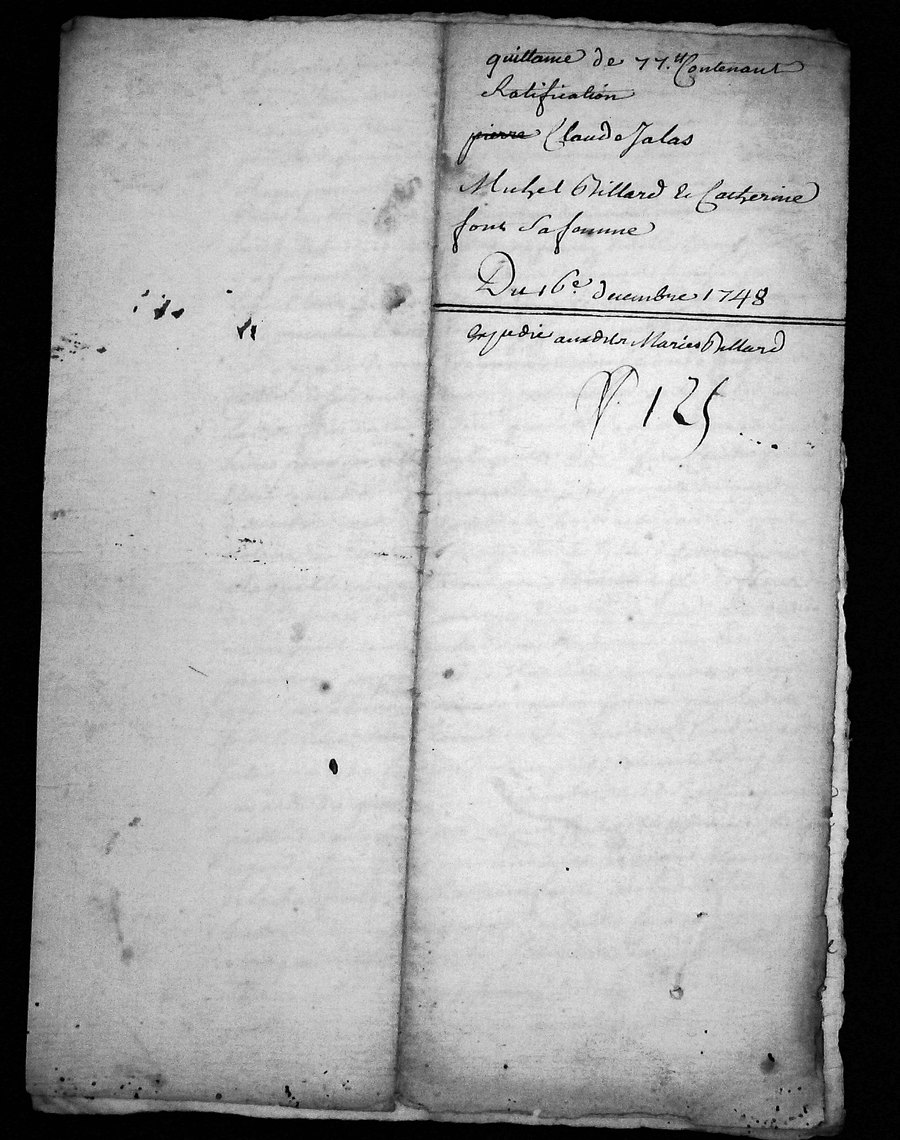 quittance de 77.tt Contenant
Ratification
pierre Claude Jalas
Michel Billard & Catherine
fons Sa femme
Du 16e decembre 1748
Expedié auxdits Mariés Billard
125